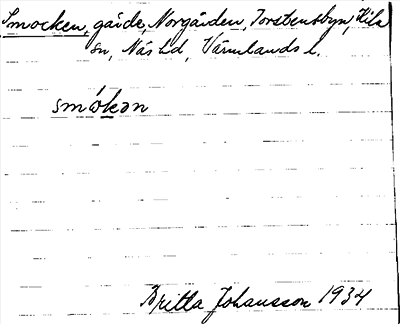 Smocken, gärde, Norgården, Torstensbyn, Kila
sn, Näs hd, Värmlands l.
smòkən
Britta Johansson 1934